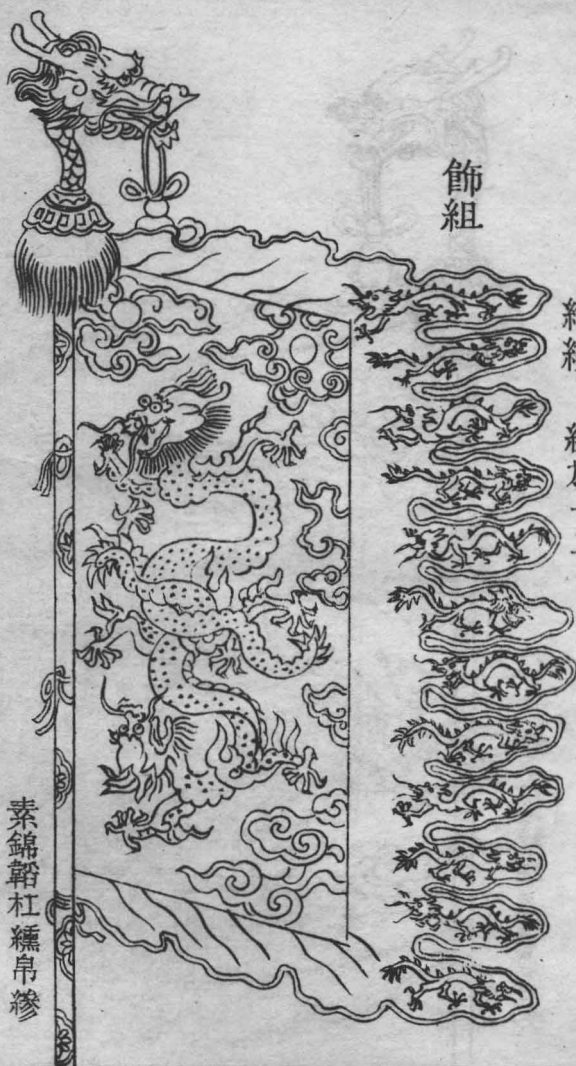 飾組
素錦韜杠纁帛縿